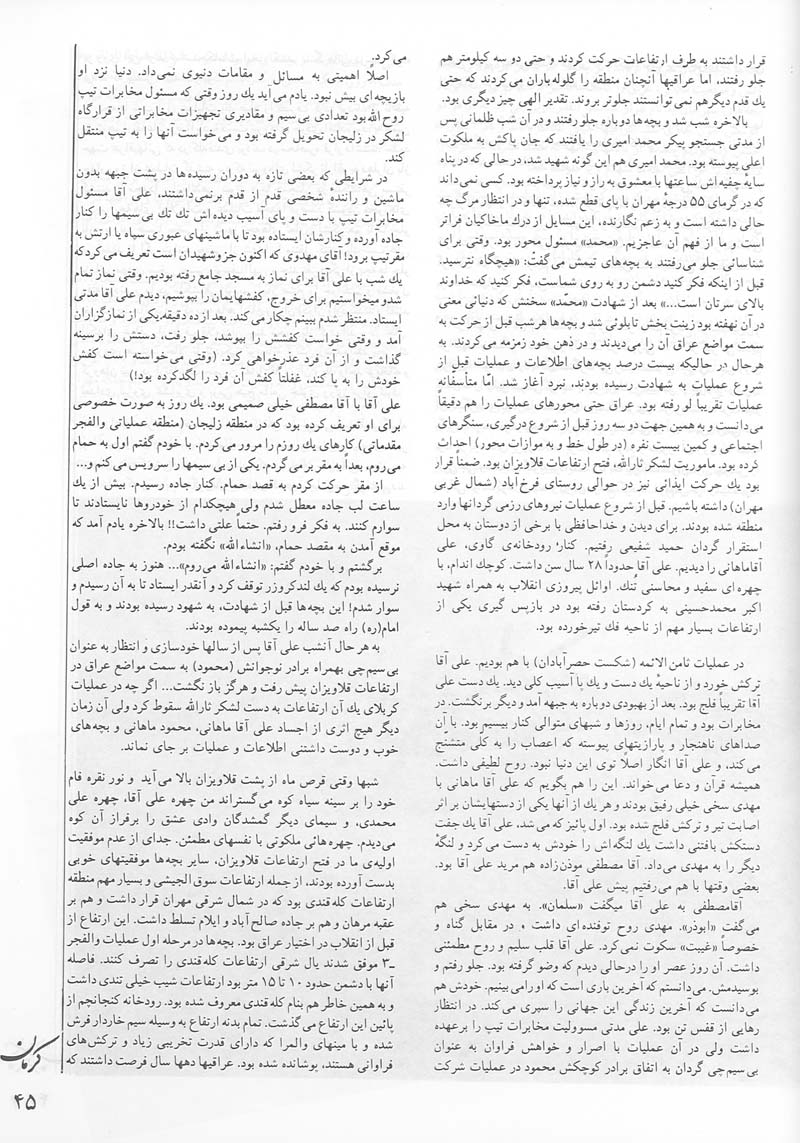 قرار داشتند به طرف ارتفاعات حرکت کردند و حتی دو سه کیلومتر هم
جلو رفتند، اما عراقیها آنچنان منطقه را گلوله‌باران می‌کردند که حتی
یك قدم دیگر هم نمی‌توانستند جلوتر بروند. تقدیر الهی چیز دیگری بود.
بالاخره شب شد و بچه‌ها دوباره جلو رفتند و در آن شب ظلمانی پس
از مدتی جستجو پیکر محمد امیری را یافتند که جان پاکش به ملکوت
اعلی پیوسته بود. محمد امیری هم این گونه شهید شد، در حالی که در پناه
سایهٔ چفیه‌اش ساعتها با معشوق به راز و نیاز پرداخته بود. کسی نمی‌داند
که در گرمای ۵۵ درجهٔ مهران با پای قطع شده، تنها و در انتظار مرگ چه
حالی داشته است و به زعم نگارنده، این مسایل از درك ماخاکیان فراتر
است و ما از فهم آن عاجزیم. «محمد» مسئول محور بود. وقتی برای
شناسائی جلو می‌رفتند به بچه‌های تیمش می‌گفت: «هیچگاه نترسید.
قبل از اینکه فکر کنید دشمن رو به روی شماست، فکر کنید که خداوند
بالای سرتان است...» بعد از شهادت «محمّد» سخنش که دنیائی معنی
در آن نهفته بود زینت بخش تابلوئی شد و بچه‌ها هر شب قبل از حرکت به
سمت مواضع عراق آن را می‌دیدند و در ذهن خود زمزمه می‌کردند. به
هر حال در حالیکه بیست درصد بچه‌های اطلاعات و عملیات قبل از
شروع عملیات به شهادت رسیده بودند، نبرد آغاز شد. امّا متأسفانه
عملیات تقریباً لو رفته بود. عراق حتی محورهای عملیات را هم دقیقاً
می‌دانست و به همین جهت دو سه روز قبل از شروع درگیری، سنگرهای
اجتماعی و کمین بیست نفره (در طول خط و به موازات محور) احداث
کرده بود. ماموریت لشکر ثارالله، فتح ارتفاعات قلاویزان بود. ضمناً قرار
بود یك حرکت ایذائی نیز در حوالی روستای فرخ‌آباد (شمال غربی
مهران) داشته باشیم. قبل از شروع عملیات نیروهای رزمی گردانها وارد
منطقه شده بودند. برای دیدن و خداحافظی با برخی از دوستان به محل
استقرار گردان حمید شفیعی رفتیم. کنار رودخانه‌ی گاوی، علی
آقاماهانی را دیدیم. علی آقا حدوداً ۲۸ سال سن داشت. کوچك اندام، با
چهره‌ای سفید و محاسنی تُنك. اوائل پیروزی انقلاب به همراه شهید
اکبر محمدحسینی به کردستان رفته بود در بازپس گیری یکی از
ارتفاعات بسیار مهم از ناحیه فك تیرخورده بود.
در عملیات ثامن‌الائمه (شکست حصرآبادان) با هم بودیم. علی آقا
ترکش خورد و از ناحیهٔ یك دست و یك پا آسیب کلی دید. یك دست علی
آقا تقریباً فلج بود. بعد از بهبودی دوباره به جبهه آمد و دیگر برنگشت. در
مخابرات بود و تمام ایام، روزها و شبهای متوالی کنار بیسیم بود. با آن
صداهای ناهنجار و پارازیتهای پیوسته که اعصاب را به کلّی متشنّج
می‌کند، و علی آقا انگار اصلاً توی این دنیا نبود. روح لطیفی داشت.
همیشه قرآن و دعا می‌خواند. این را هم بگویم که علی آقا ماهانی با
مهدی سخی خیلی رفیق بودند و هر یك از آنها یکی از دستهایشان بر اثر
اصابت تیر و ترکش فلج شده بود. اول پائیز که می‌شد، علی آقا یك جفت
دستکش بافتنی داشت یك لنگه‌اش را خودش به دست می‌کرد و لنگهٔ
دیگر را به مهدی می‌داد. آقا مصطفی موذن‌زاده هم مرید علی آقا بود.
بعضی وقتها با هم می‌رفتیم پیش علی آقا.
آقامصطفی به علی آقا میگفت «سلمان». به مهدی سخی هم
می‌گفت «ابوذر». مهدی روح توفنده‌ای داشت ، در مقابل گناه و
خصوصاً «غیبت» سکوت نمی‌کرد. علی آقا قلب سلیم و روح مطمئنی
داشت. آن روز عصر او را درحالی دیدم که وضو گرفته بود. جلو رفتم و
بوسیدمش. می‌دانستم که آخرین باری است که او رامی‌بینم. خودش هم
می‌دانست که آخرین زندگی این جهانی را سپری می‌کند. در انتظار
رهایی از قفس تن بود. علی مدتی مسوولیت مخابرات تیپ را برعهده
داشت ولی در آن عملیات با اصرار و خواهش فراوان به عنوان
بی‌سیم‌چی گردان به اتفاق برادر کوچکش محمود در عملیات شرکت
می‌کرد.
اصلاً اهمیتی به مسائل و مقامات دنیوی نمی‌داد. دنیا نزد او
بازیچه‌ای بیش نبود. یادم می‌آید یك روز وقتی که مسئول مخابرات تیپ
روح الله بود تعدادی بی‌سیم و مقادیری تجهیزات مخابراتی از قرارگاه
لشکر در زلیجان تحویل گرفته بود و می‌خواست آنها را به تیپ منتقل
کند.
در شرایطی که بعضی تازه به دوران رسیده‌ها در پشت جبهه بدون
ماشین و رانندهٔ شخصی قدم از قدم برنمی‌داشتند، علی آقا مسئول
مخابرات تیپ با دست و پای آسیب دیده‌اش تك تك بی‌سیمها را کنار
جاده آورده و کنارشان ایستاده بود تا با ماشینهای عبوری سپاه یا ارتش به
مقر تیپ برود! آقای مهدوی که اکنون جزو شهیدان است تعریف می‌کرد که
یك شب با علی آقا برای نماز به مسجد جامع رفته بودیم. وقتی نماز تمام
شدو میخواستیم برای خروج، کفشهایمان را بپوشیم، دیدم علی آقا مدتی
ایستاد. منتظر شدم ببینم چکار می‌کند. بعد از ده دقیقه، یکی از نمازگزاران
آمد و وقتی خواست کفشش را بپوشد، جلو رفت، دستش را برسینه
گذاشت و از آن فرد عذرخواهی کرد. (وقتی می‌خواسته است کفش
خودش را به پا کند، غفلتاً کفش آن فرد را لگدکرده بود!)
علی آقا با آقا مصطفی خیلی صمیمی بود. یك روز به صورت خصوصی
برای او تعریف کرده بود که در منطقه زلیجان (منطقه عملیاتی والفجر
مقدماتی) کارهای یك روزم را مرور می‌کردم. با خودم گفتم اول به حمام
می‌روم، بعداً به مقر بر می‌گردم. یکی از بی سیمها را سرویس می‌کنم و...
از مقر حرکت کردم به قصد حمام. کنار جاده رسیدم. بیش از یك
ساعت لب جاده معطل شدم ولی هیچکدام از خودروها نایستادند تا
سوارم کنند. به فکر فرو رفتم. حتماً علتی داشت!! بالاخره یادم آمد که
موقع آمدن به مقصد حمام، «انشاءالله» نگفته بودم.
برگشتم و با خودم گفتم: «انشاءالله می‌روم»... هنوز به جاده اصلی
نرسیده بودم که یك لندکروزر توقف کرد و آنقدر ایستاد تا به آن رسیدم و
سوار شدم! این بچه‌ها قبل از شهادت، به شهود رسیده بودند و به قول
امام(ره) راه صد ساله را یکشبه پیموده بودند.
به هر حال آنشب علی آقا پس از سالها خودسازی و انتظار به عنوان
بی‌سیم‌چی بهمراه برادر نوجوانش (محمود) به سمت مواضع عراق در
ارتفاعات قلاویزان پیش رفت و هرگز باز نگشت... اگر چه در عملیات
کربلای یك آن ارتفاعات به دست لشکر ثارالله سقوط کرد ولی آن زمان
دیگر هیچ اثری از اجساد علی آقا ماهانی، محمود ماهانی و بچه‌های
خوب و دوست داشتنی اطلاعات و عملیات بر جای نماند.
شبها وقتی قرص ماه از پشت قلاویزان بالا می‌آید و نور نقره فام
خود را بر سینه سیاه کوه می‌گستراند من چهره علی آقا، چهره علی
محمدی، و سیمای دیگر گمشدگان وادی عشق را برفراز آن کوه
می‌دیدم. چهره‌هائی ملکوتی با نفسهای مطمئن. جدای از عدم موفقیت
اولیه‌ی ما در فتح ارتفاعات قلاویزان، سایر بچه‌ها موفقیتهای خوبی
بدست آورده بودند، از جمله ارتفاعات سوق الجیشی و بسیار مهم منطقه
ارتفاعات کله‌قندی بود که در شمال شرقی مهران قرار داشت و هم بر
عقبه مرهان و هم بر جاده صالح آباد و ایلام تسلط داشت. این ارتفاع از
قبل از انقلاب در اختیار عراق بود. بچه‌ها در مرحله اول عملیات والفجر
ـ۳ موفق شدند یال شرقی ارتفاعات کله‌قندی را تصرف کنند. فاصله
آنها با دشمن حدود ۱۰ تا ۱۵ متر بود ارتفاعات شیب خیلی تندی داشت
و به همین خاطر هم بنام کله‌قندی معروف شده بود. رودخانه کنجانچم از
پائین این ارتفاع می‌گذشت. تمام بدنه ارتفاع به وسیله سیم خاردار فرش
شده و با مینهای والمرا که دارای قدرت تخریبی زیاد و ترکش‌های
فراوانی هستند، پوشانده شده بود. عراقیها دهها سال فرصت داشتند که
کرمان
۴۵